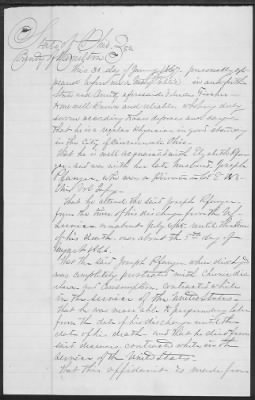 State of Ohio, ss
County of Hamilton
This 31 day of January 1867 personally ap
peared before me a Notary Public in and for the
State and County aforesaid Fischer
to me well known and reliable who being duly
sworn according to law deposes and says
that he is a regular Physician in good standing
in the City of Cincinnati Ohio.
That he is well acquainted with Elizabeth
and was with her late husband Joseph
Pfanger, who was a Private in Co
Ohio Vol Infy.
That he attended the said Joseph Pfanger
from the time of his discharge from the US
Service until the time
of his death on or about the day of
August 1866.
That the said Joseph Pfanger when discharged
was completely prostrated with Chronic dia
rrhoea and Consumption, contracted while
in the service of the United States.
that he was never able to perform any labor
from the date of his discharge until the
date of his death and that he died from
said diseases contracted while in the
Service of the United States.
That this affidavit is made from